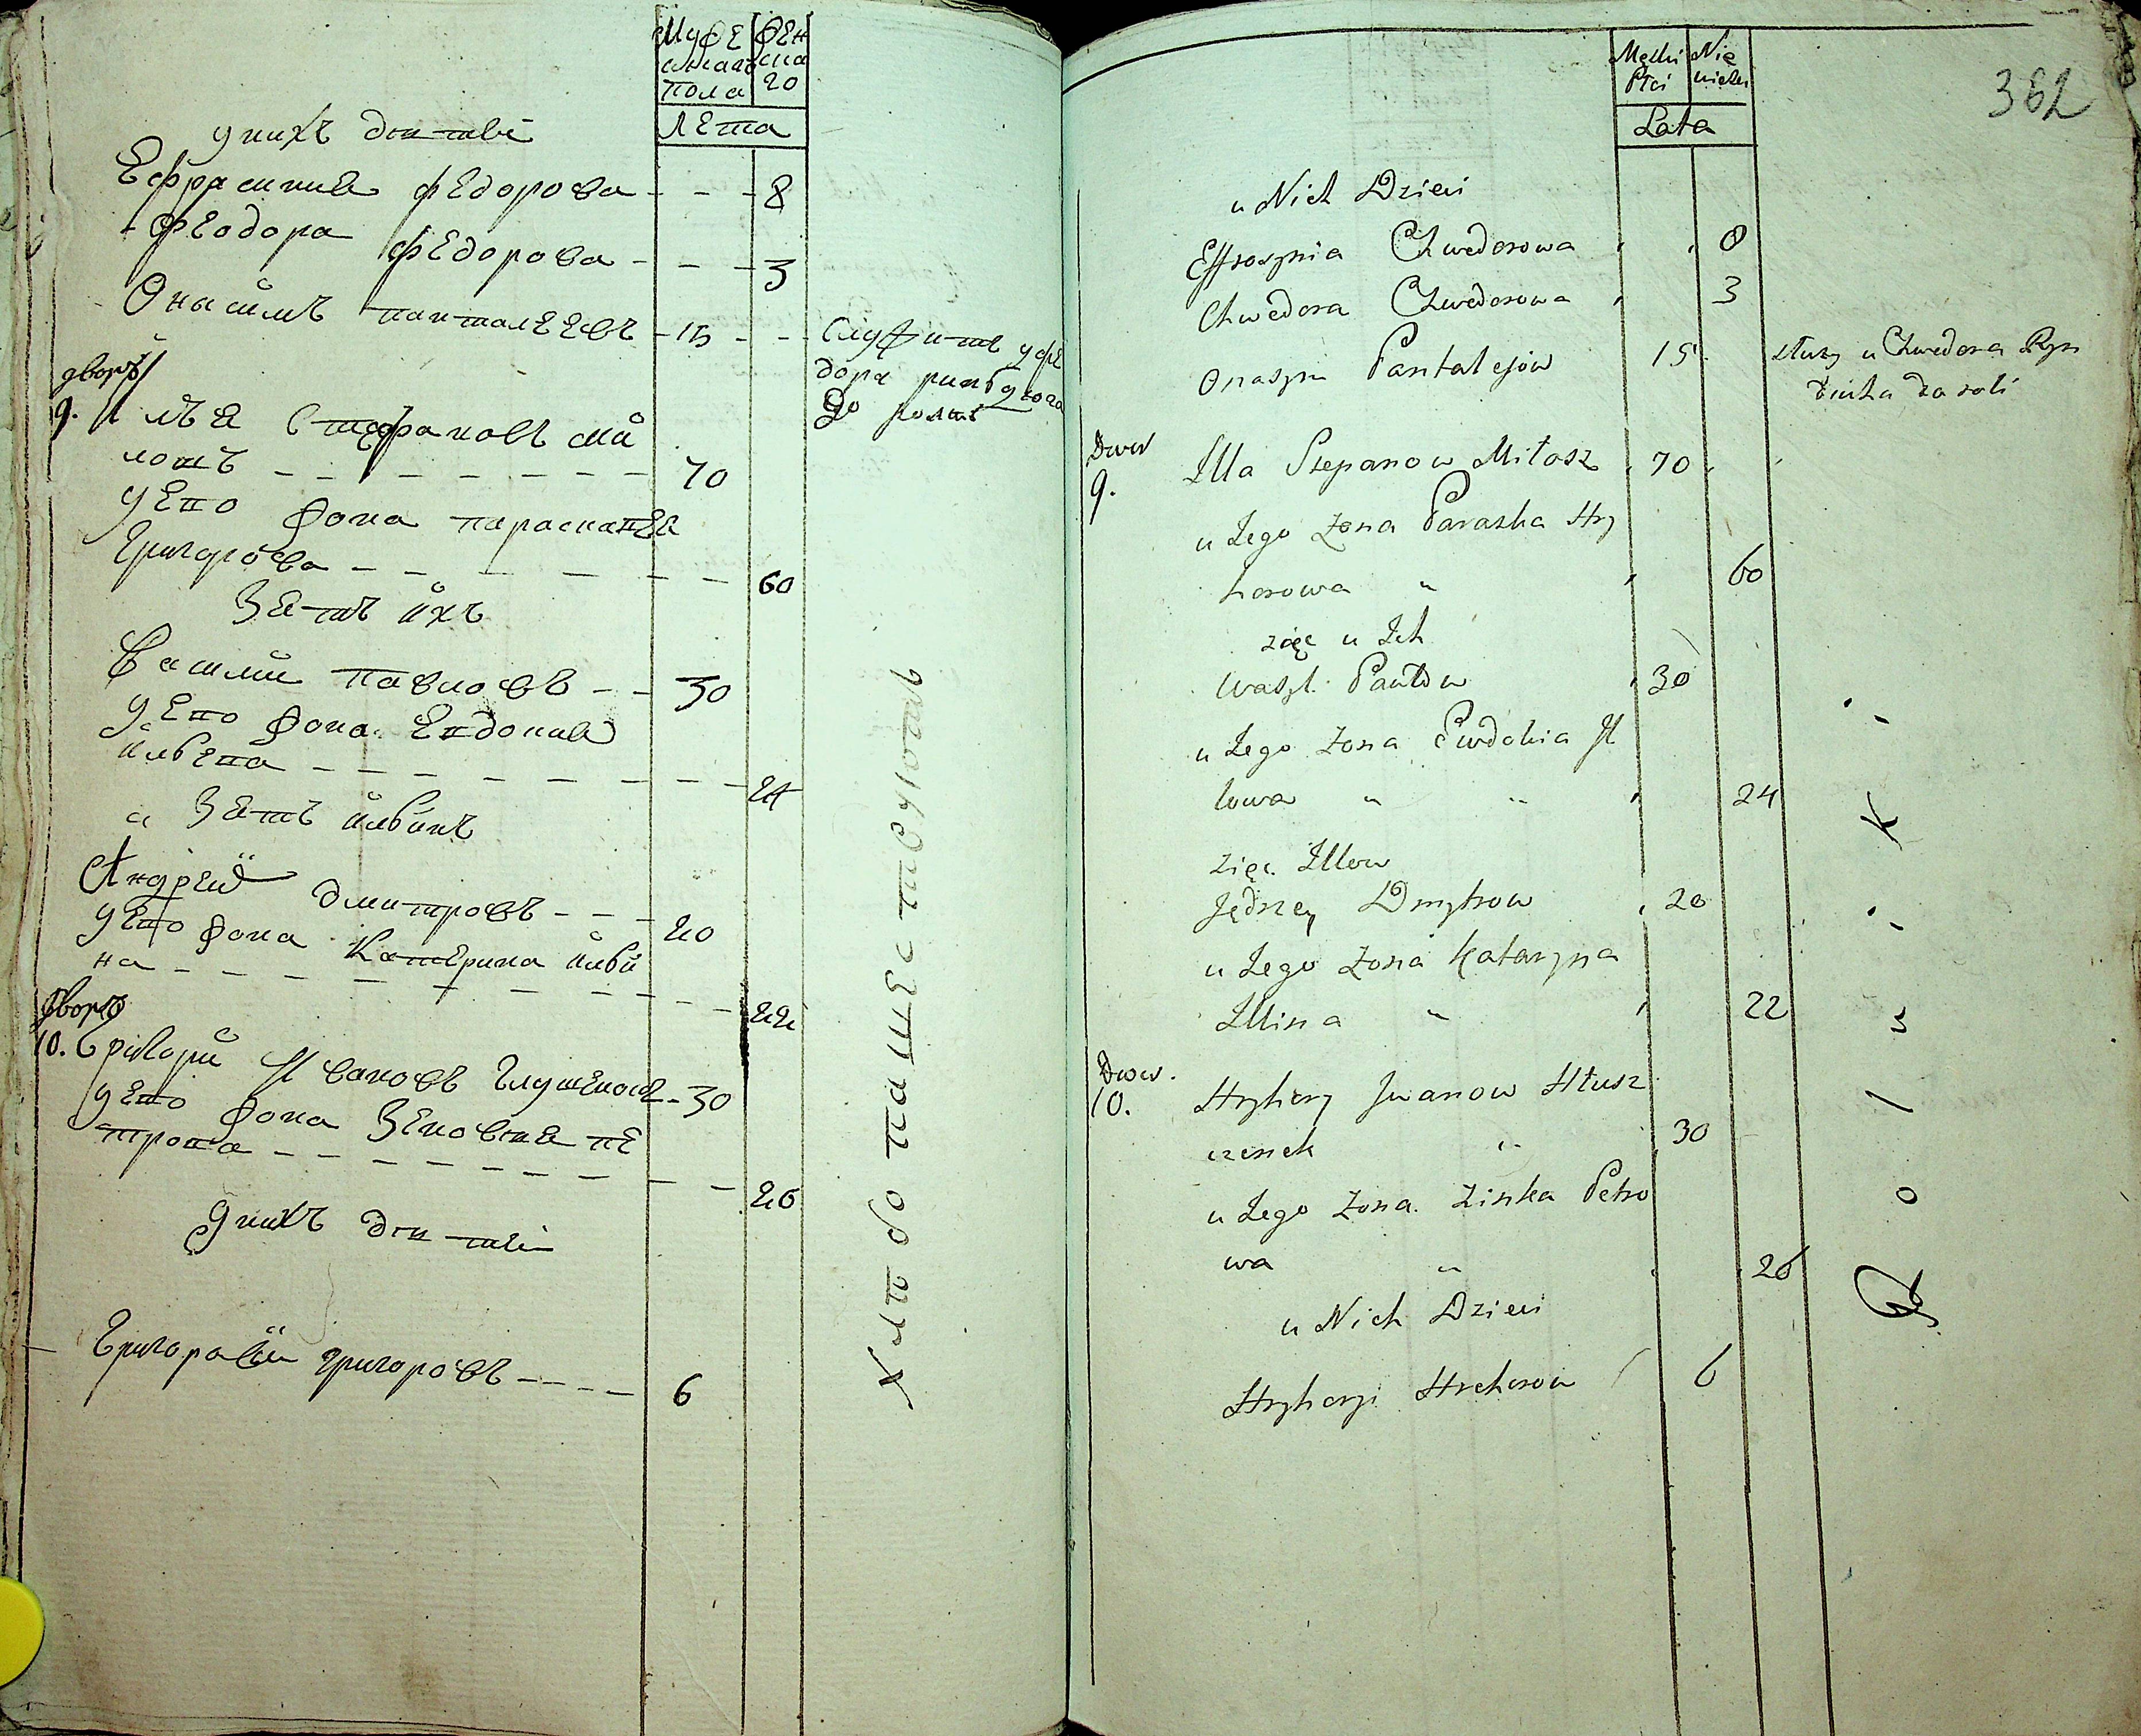 Муже ЖЕн
скаго ска
пола го
ЛЕта
у нихъ дѣти
Ефрасиния ФЕдорова - - - 8
Феодора ФЕдорова - - - 3
Онисимъ панталЕЕвъ - 15 - - Служитъ у фе
дора
до
дворъ
9. Илья Стефановъ Ми
лошъ - - - - - - - 70
у Его жона параскавЕя
Григорова - - - - - - 60
ЗЯть ихъ
Василий павловъ - - 30
у Его жона Евдокия
ильЕва - - - - - - - - 24
ЗЯть ильинъ
Андрей дмитровъ - - - 20
у Его жона КатЕрина ильи
на - - - - - - - - - - 22
дворъ
10. Григорий Ивановъ глушЕнокъ - 30
у Его жона ЗЕновия пЕ
трова - - - - - - - - - 26
у нихъ дѣти
Григорей григоровъ - - - - 6
ХлѢбопаШЕствуютъ
362
Męzki Nie
Płci wieści
Lata
u Nich Dzieci
Effrosynia Chwedorowa 8
Chwedora Chwedorowa 3
Onazym Pantalejow 15 służy u Chwedora Ryn
do roli
Dwor
9. Illa Stepanow Miłosz 70
u Jego Żona Paraska Hry
horowa " 60
zięć u Ich
Wasyl Pawłow 30
u Jego Żona Ewdokia Il
lowa " " 24
Zięć Illow
Jędrzey Dmytrow 20
u Jego Żona Kataryna
Illina " 22
Dwor.
10. Hryhory Iwanow Hłusz
czenek " 30
u Jego Żona Zinka Petro
wa " 26
u Nich Dzieci
Hryhoryi Hrehorow 6
Rolniki